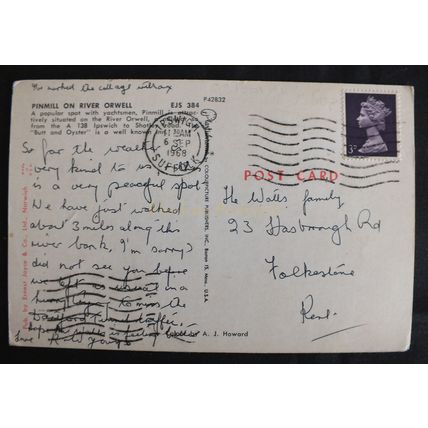 I've marked the cottage with an x
PINMILL ON RIVER ORWELL EJS 384
A popular spot with yachtsmen, Pinmill is attractively situated on the River Orwell,
from the A 138 Ipswich to Shotley
"Butt and Oyster" is a well known
P42832
IPSWICH
SUFFOLK
6 SEP
1968
3D
POST CARD
So far the weather
very kind to us
is a very peaceful spot
We have just walked
about 3 miles along this
river bank, I'm sorry I
did not see you before
we left as usual in a
to miss the
Dartford Tunnel traffic,
hope
Love
The Watts family
23 Hasborough Rd
Folkestone
Kent.
Pub. by Ernest Joyce & Co. Ltd., Norwich
COLOURPICTURE PUBLISHERS, INC., Boston 15, Mass., U.S.A.
A. J. Howard